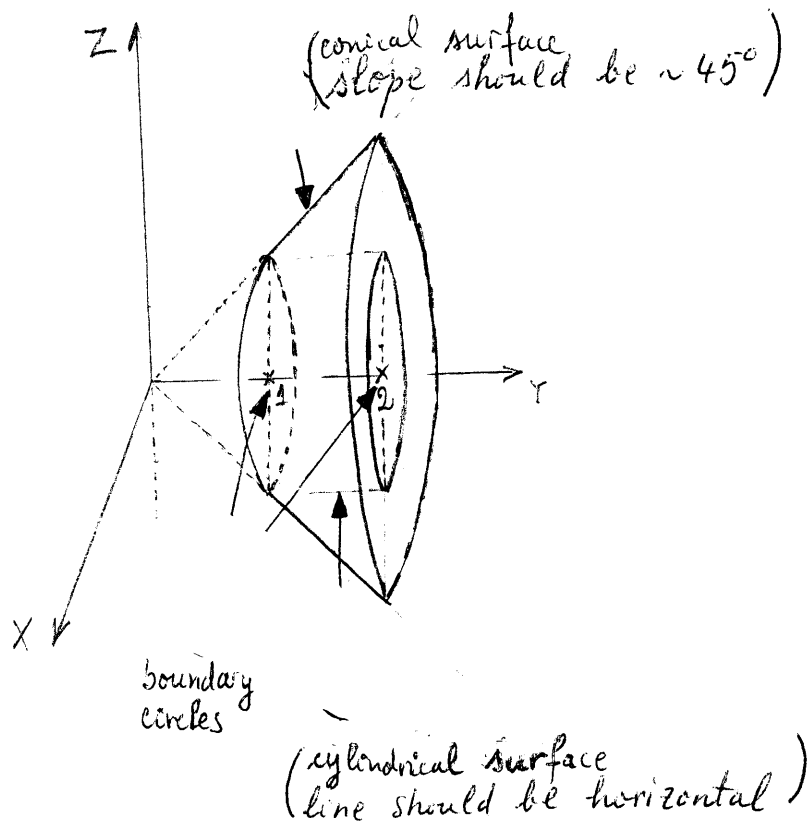 Z
(conical surface
slope should be ~ 45°)
1
2
Y
X
boundary
circles
(cylindrical surface
line should be horizontal)